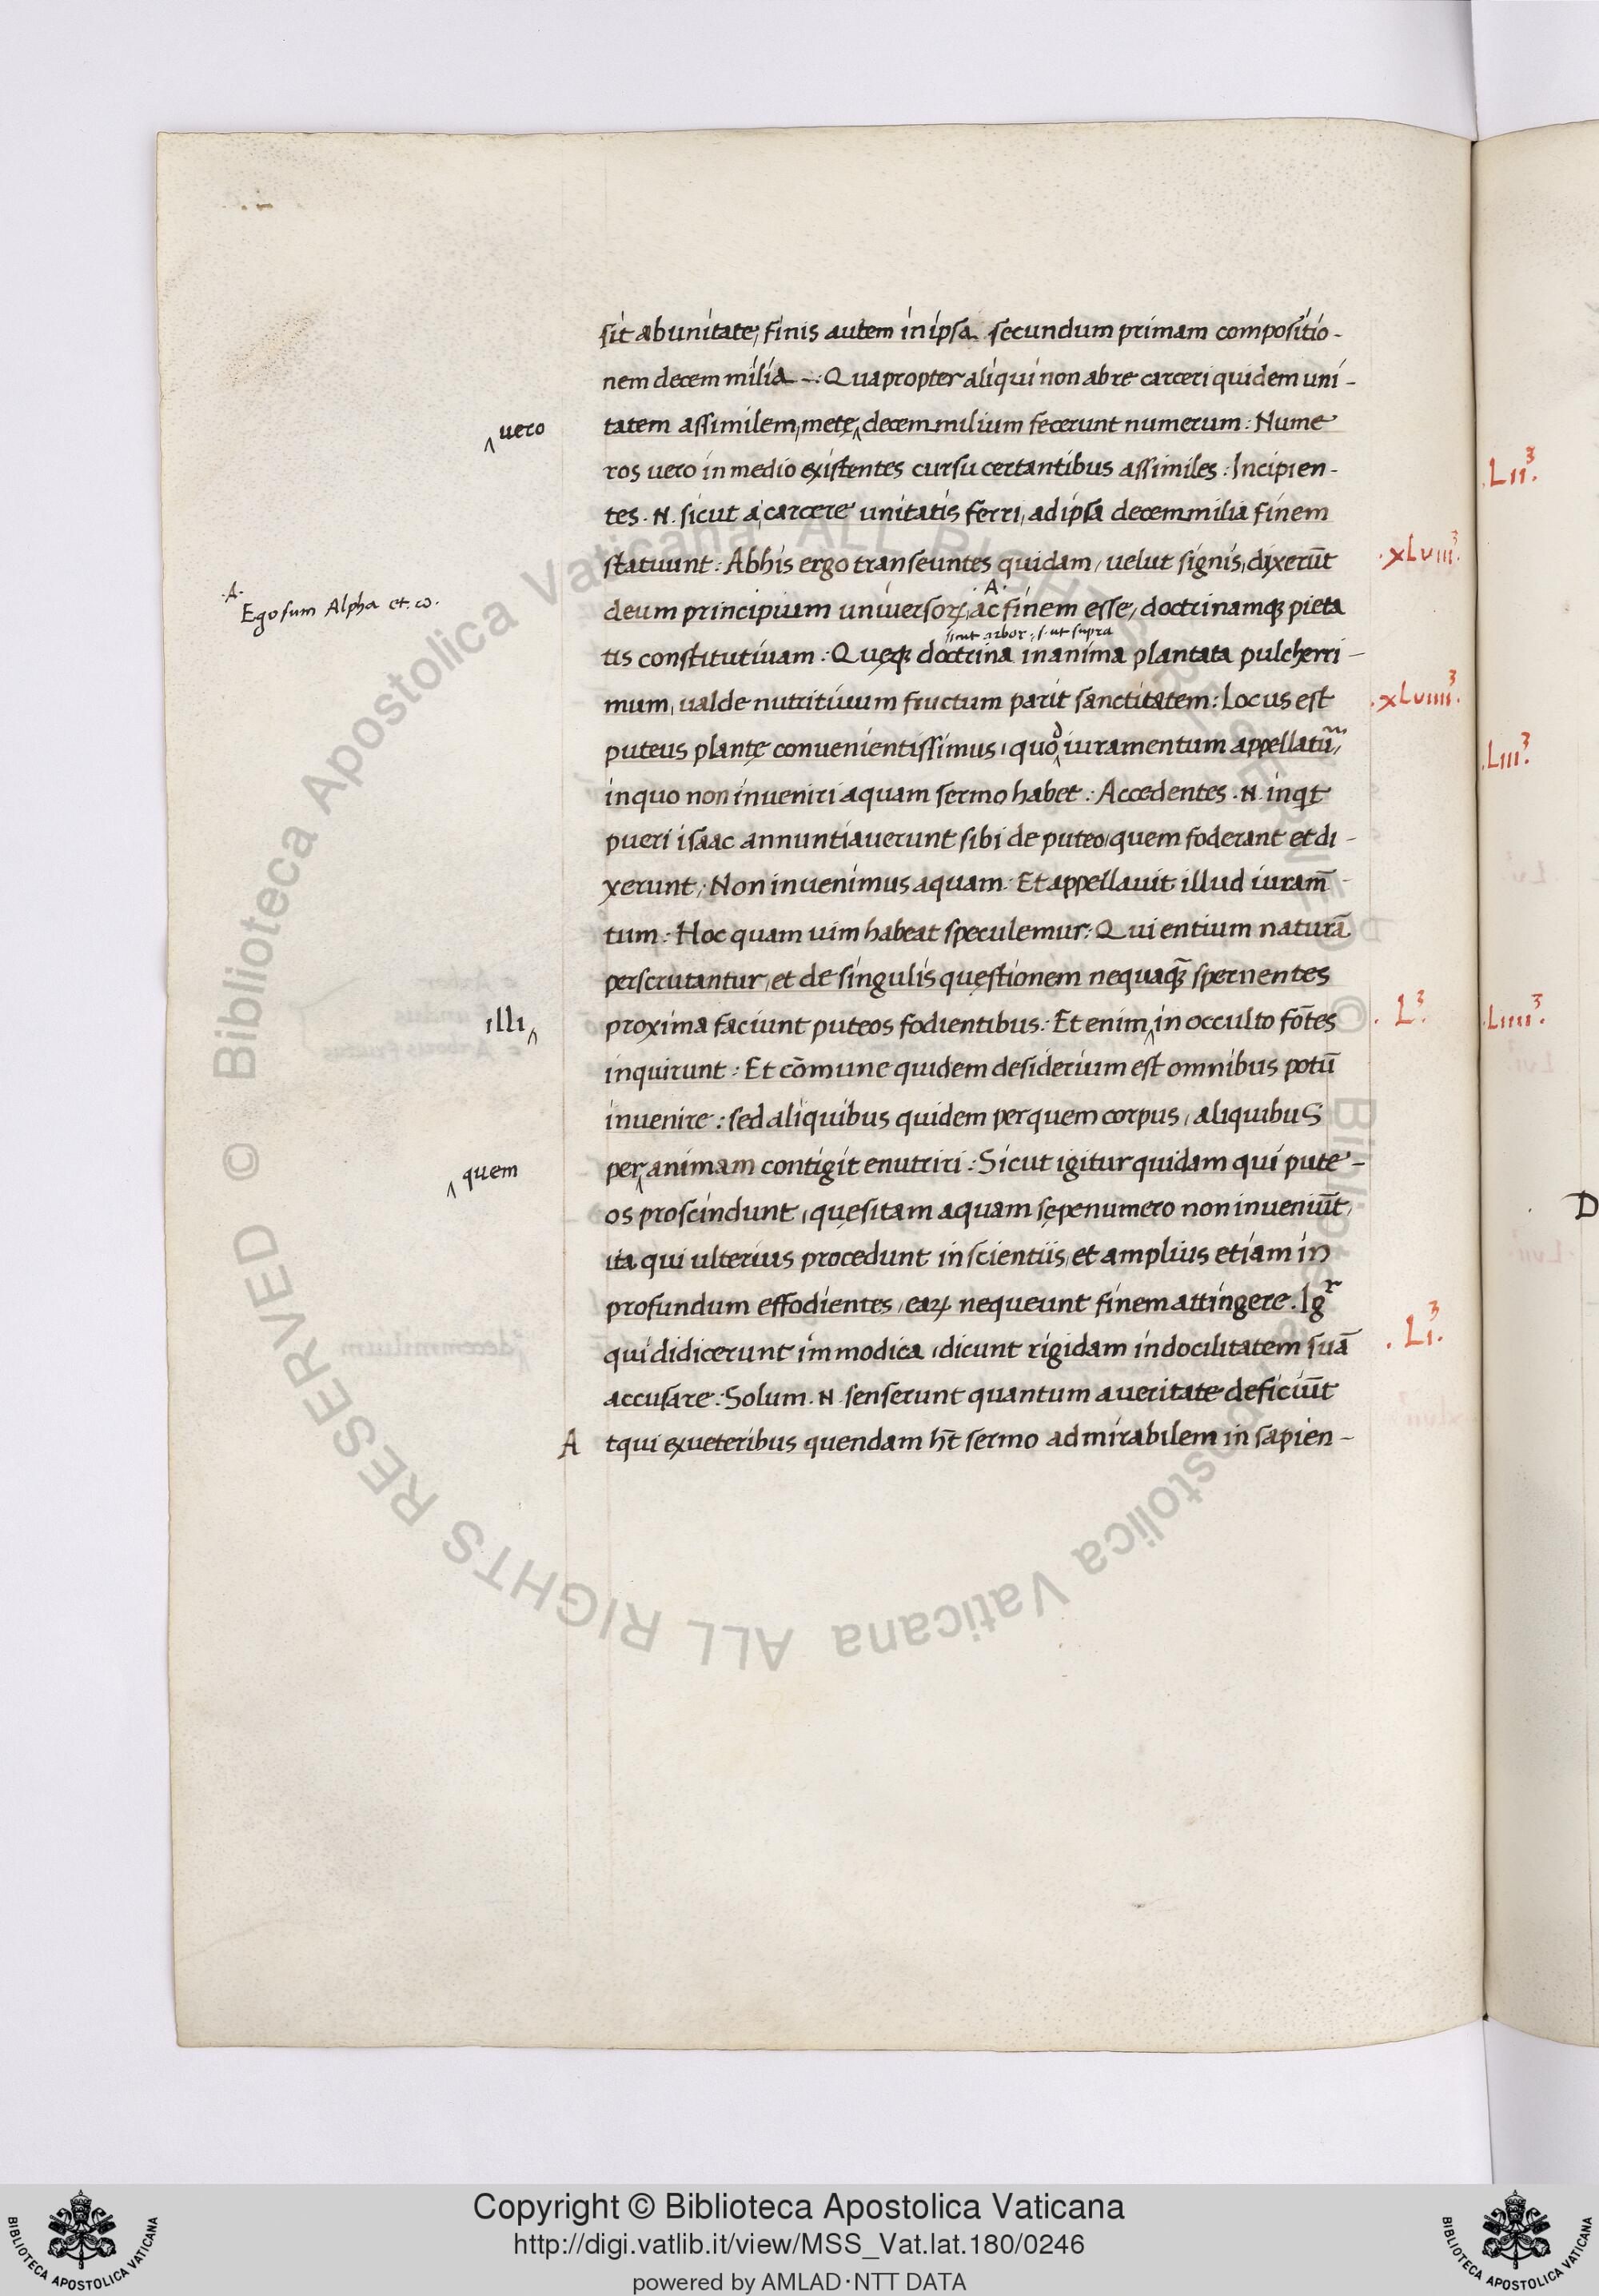 sit ab unitate, finis autem in ipsa secundum primam compositio-
nem decem milia -:· Quapropter aliqui non ab re carceri quidem uni-
‸uero
tatem assimilem, metę‸ decem milium fecerunt numerum: Nume
ros uero in medio existentes cursu certantibus assimiles: Incipien-
tes .N. sicut a carcere unitatis ferri, ad ipsa decem milia finem
statuunt: Ab his ergo transeuntes quidam, uelut signis, dixerūt
.xLviii³.
.A.
Ego sum Alpha et ω.
.A.
deum principium uniuersoꝝ, ac finem esse, doctrinamqꝫ pieta
sicut arbor: s. ut supra
tis constitutiuam: Quęqꝫ doctrina in anima plantata pulcherri-
mum, ualde nutritiuum fructum parit sanctitatem: Locus est
.xLviiii³.
puteus plantę conuenientissimus, quo‸d iuramentum appellatū,
in quo non inueniri aquam sermo habet: Accedentes .N. inqt
pueri isaac annuntiauerunt sibi de puteo, quem foderant et di-
xerunt: Non inuenimus aquam. Et appellauit illud iuram̄-
tum: Hoc quam uim habeat speculemur: Qui entium naturā
perscrutantur, et de singulis quęstionem nequaqꝫ̄ spernentes
illi‸
proxima faciunt puteos fodientibus: Et enim‸ in occulto fōtes
. L³.
inquirunt: Et cōmune quidem desiderium est omnibus potū
inuenire: sed aliquibus quidem per quem corpus, aliquibus
‸quem
per‸ animam contigit enutriri: Sicut igitur quidam qui pute-
os proscindunt, quęsitam aquam sępenumero non inueniūt,
ita qui ulterius procedunt in scientiis, et amplius etiam in
profundum effodientes, eaꝝ nequeunt finem attingere. Igʳ
qui didicerunt immodica, dicunt rigidam indocilitatem suā
. Li³.
accusare: Solum .N. senserunt quantum a ueritate deficiūt
A tqui ex ueteribus quendam h̄t sermo admirabilem in sapien-
.Lii³.
.Liii³.
.Liiii³.
D
© Biblioteca Apostolica Vaticana ALL RIGHTS RESERVED © Biblioteca Apostolica Vaticana ALL RIGHTS RESERVED
Copyright © Biblioteca Apostolica Vaticana
http://digi.vatlib.it/view/MSS_Vat.lat.180/0246
powered by AMLAD·NTT DATA
BIBLIOTECA APOSTOLICA VATICANA
BIBLIOTECA APOSTOLICA VATICANA